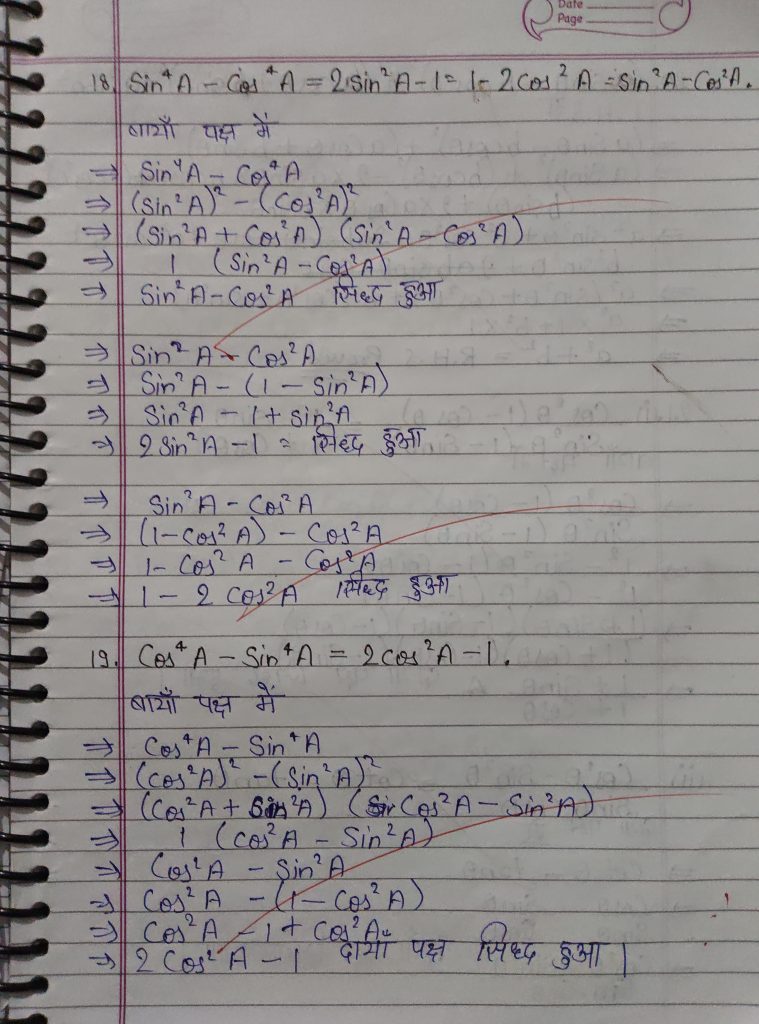 Date
Page
18. Sin⁴A - Cos⁴A = 2 Sin²A - 1 = 1 - 2 Cos²A = Sin²A - Cos²A.
बायाँ पक्ष में
⇒ Sin⁴A - Cos⁴A
⇒ (Sin²A)² - (Cos²A)²
⇒ (Sin²A + Cos²A) (Sin²A - Cos²A)
⇒ 1 (Sin²A - Cos²A)
⇒ Sin²A - Cos²A सिध्द हुआ
⇒ Sin²A - Cos²A
⇒ Sin²A - (1 - Sin²A)
⇒ Sin²A - 1 + Sin²A
⇒ 2 Sin²A - 1 = सिध्द हुआ
⇒ Sin²A - Cos²A
⇒ (1 - Cos²A) - Cos²A
⇒ 1 - Cos²A - Cos²A
⇒ 1 - 2 Cos²A सिध्द हुआ
19. Cos⁴A - Sin⁴A = 2 Cos²A - 1.
बायाँ पक्ष में
⇒ Cos⁴A - Sin⁴A
⇒ (Cos²A)² - (Sin²A)²
⇒ (Cos²A + Sin²A) (Cos²A - Sin²A)
⇒ 1 (Cos²A - Sin²A)
⇒ Cos²A - Sin²A
⇒ Cos²A - (1 - Cos²A)
⇒ Cos²A - 1 + Cos²A
⇒ 2 Cos²A - 1 दायाँ पक्ष सिध्द हुआ |